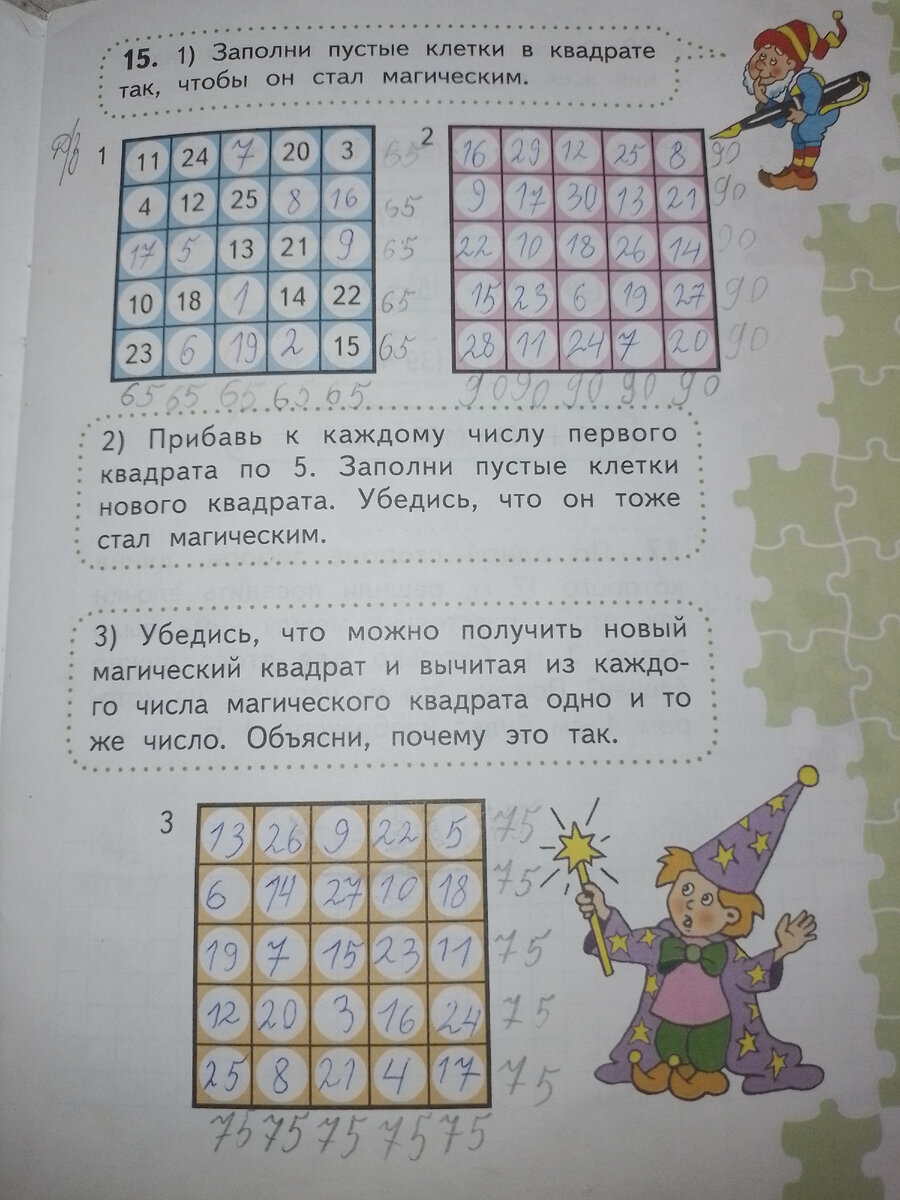 15. 1) Заполни пустые клетки в квадрате
так, чтобы он стал магическим.
1
11 24 7 20 3 65
4 12 25 8 16 65
17 5 13 21 9 65
10 18 1 14 22 65
23 6 19 2 15 65
65 65 65 65 65
2
16 29 12 25 8 90
9 17 30 13 21 90
22 10 18 26 14 90
15 23 6 19 27 90
28 11 24 7 20 90
90 90 90 90 90
2) Прибавь к каждому числу первого
квадрата по 5. Заполни пустые клетки
нового квадрата. Убедись, что он тоже
стал магическим.
3) Убедись, что можно получить новый
магический квадрат и вычитая из каждо-
го числа магического квадрата одно и то
же число. Объясни, почему это так.
3
13 26 9 22 5 75
6 14 27 10 18 75
19 7 15 23 11 75
12 20 3 16 24 75
25 8 21 4 17 75
75 75 75 75 75